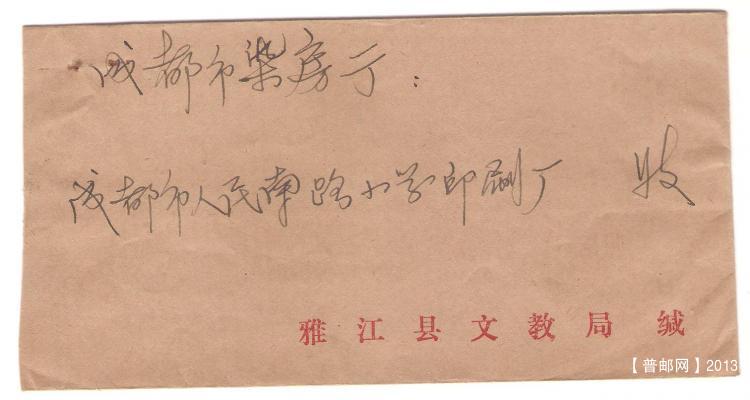 成都市柴房厅：
成都市人民南路小学印刷厂 收
雅江县文教局 缄
【普邮网】2013